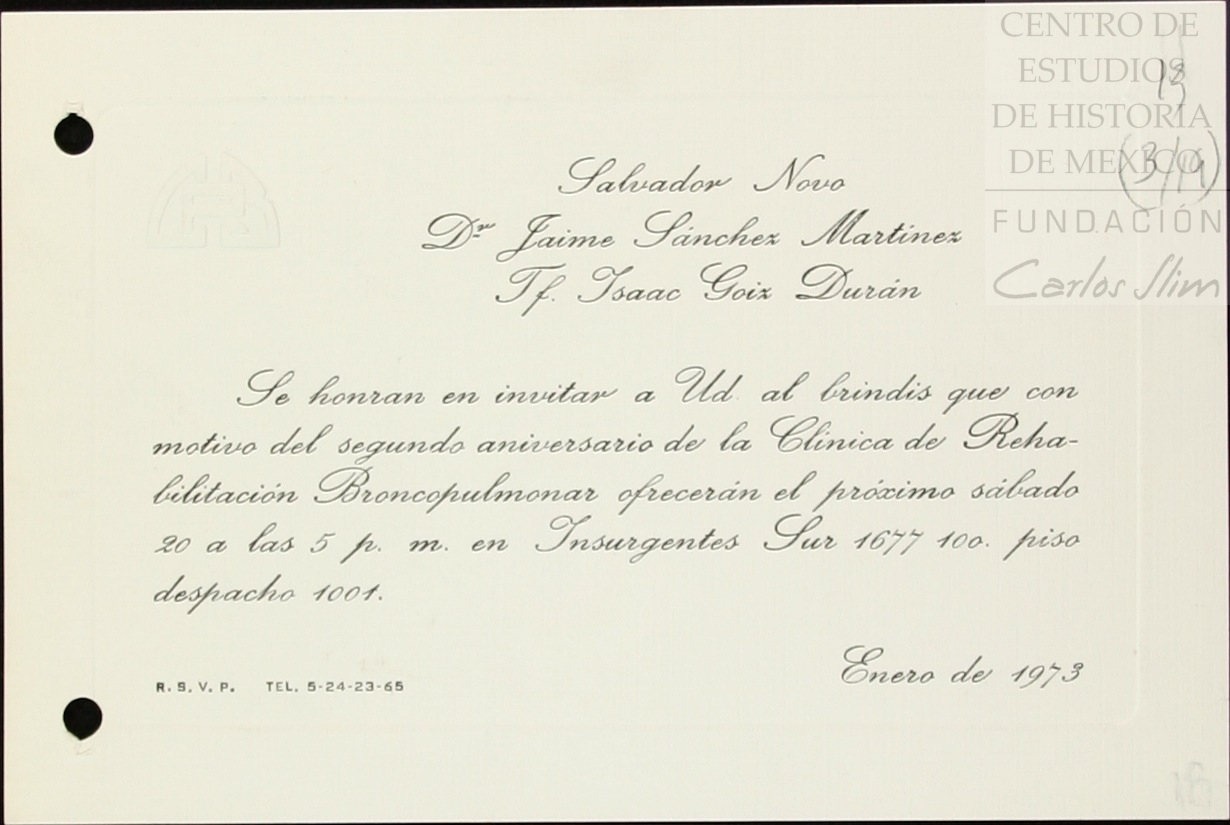 CENTRO DE
ESTUDIOS
DE HISTORIA
DE MEXICO
FUNDACIÓN
Carlos Slim
13
(3/19)
Salvador Novo
Dr. Jaime Sánchez Martínez
Tf. Isaac Goiz Durán
Se honran en invitar a Ud. al brindis que con
motivo del segundo aniversario de la Clínica de Reha-
bilitación Broncopulmonar ofrecerán el próximo sábado
20 a las 5 p. m. en Insurgentes Sur 1677 10o. piso
despacho 1001.
Enero de 1973
R. S. V. P. TEL. 5-24-23-65